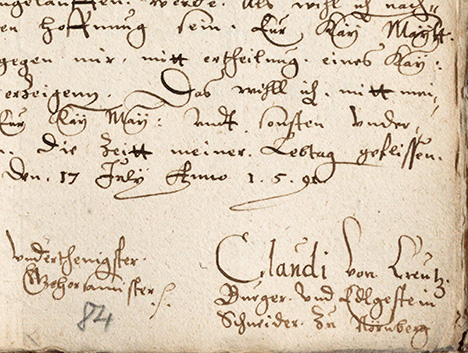 werde. Als wihl ich nach=
en hoffnung sein. Eur Kay Maystt.
gegen mir, mitt ertheilung eines Kay:
erzeigenn, Das wihll ich, mitt mei=
Eur Kay May: undt sonsten under=
n. Die Zeitt meiner Lebtag geflissen.
Den. 17 July Anno 1.5.9
underthenigster.
Gehorsamister
84
Claudi von Creutz.
Burger. und Edlgestein
Schneider. Zu Nornberg